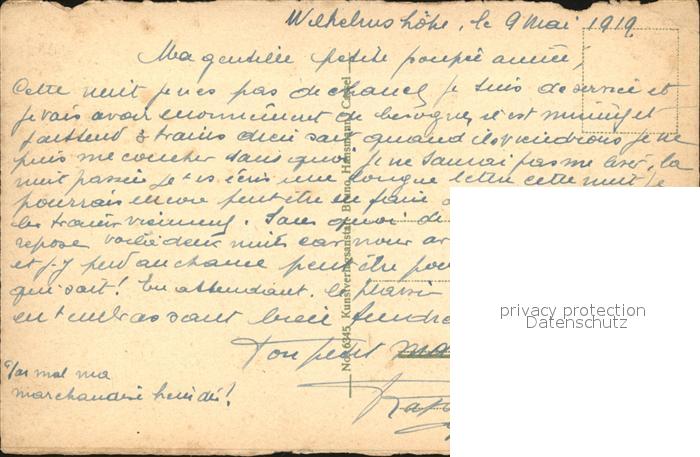 Wilhelmshöhe, le 9 Mai 1919
Ma gentille petite poupée aimée,
Cette nuit je n'ai pas de chance, je suis de service et
je vais avoir énormément de besogne, il est minuit et
j'attend 3 trains dieu sait quand ils viendrons je ne
puis me coucher sans quoi je ne saurai pas me lever, la
nuit passée je t'ai écris une longue lettre cette nuit je
pourrais encore peut être en faire
les trains viennent. Sans quoi de
repose voilà deux nuits car nous
et j'y perd au chance peut être pour
qui sait! En attendant le plaisir
en t'embrassant bien
Ton petit
Pas mal ma
marchandise hein dis!
No. 6345. Kunstverlagsanstalt Bruno Hansmann, Cassel
privacy protection
Datenschutz